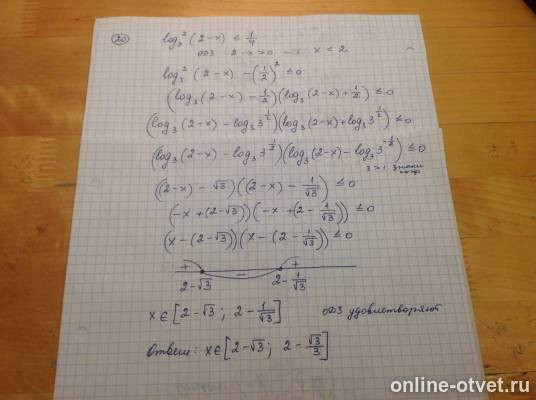 20 log₃² (2-x) ≤ 1/4
ОДЗ 2-x>0 → x < 2
log₃² (2-x) - (1/2)² ≤ 0
(log₃(2-x) - 1/2)(log₃(2-x) + 1/2) ≤ 0
(log₃(2-x) - log₃ 3^(1/2))(log₃(2-x) + log₃ 3^(1/2)) ≤ 0
(log₃(2-x) - log₃ 3^(1/2))(log₃(2-x) - log₃ 3^(-1/2)) ≤ 0
3>1 знаки
((2-x) - √3)((2-x) - 1/√3) ≤ 0
(-x + (2-√3))(-x + (2 - 1/√3)) ≤ 0
(x - (2-√3))(x - (2 - 1/√3)) ≤ 0
+ - +
2-√3 2 - 1/√3
x ∈ [2-√3 ; 2 - 1/√3] ОДЗ удовлетворяют
Ответ: x ∈ [2-√3 ; 2 - √3/3]
online-otvet.ru